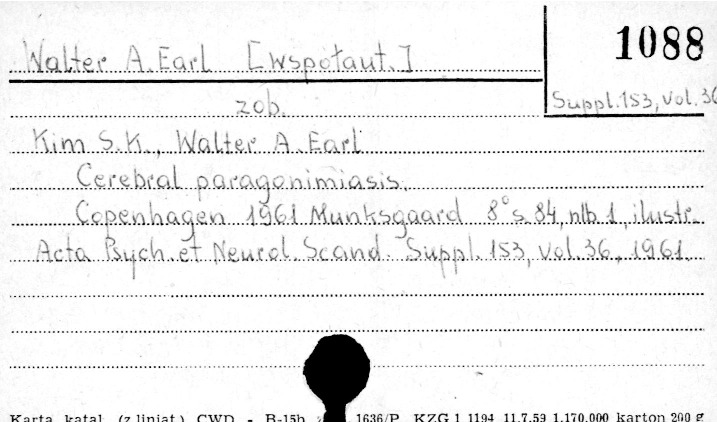 Walter A. Earl [współaut.]
1088
Suppl. 153, vol. 36
zob.
Kim S.K., Walter A. Earl
Cerebral paragonimiasis.
Copenhagen 1961 Munksgaard 8° s. 84, nlb. 1, ilustr.
Acta Psych. et Neurol. Scand. Suppl. 153, vol. 36, 1961.
Karta katal. (z liniat.) CWD - B-15b 1636/P KZG 1 1194 11.7.59 1.170.000 karton 200 g